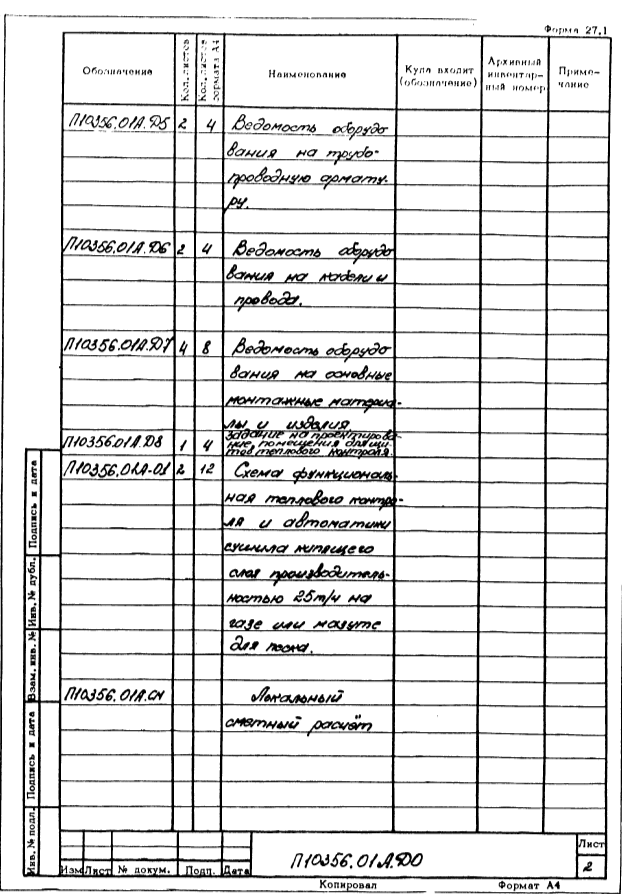 Форма 27.1
Обозначение
Кол. листов
Кол. листов формата А4
Наименование
Куда входит
(обозначение)
Архивный
инвентар-
ный номер
Приме-
чание
П10356.01А.Д5 2 4 Ведомость оборудо
вания на трубо-
проводную армату-
ру.
П10356.01А.Д6 2 4 Ведомость оборудо
вания на кабели и
провода.
П10356.01А.Д7 4 8 Ведомость оборудо
вания на основные
монтажные материа-
лы и изделия
П10356.01А.Д8 1 4 Задание на проектирова-
ние помещения для щи-
тов теплового контроля.
П10356.01А-01 2 12 Схема функциональ-
ная теплового контро-
ля и автоматики
сушила кипящего
слоя производитель-
ностью 25т/ч на
газе или мазуте
для песка.
П10356.01А.СМ Локальный
сметный расчёт
Подпись и дата
Инв. № дубл.
Взам. инв. №
Подпись и дата
Инв. № подл.
Изм Лист № докум. Подп. Дата
П10356.01А.Д0
Лист
2
Копировал
Формат А4